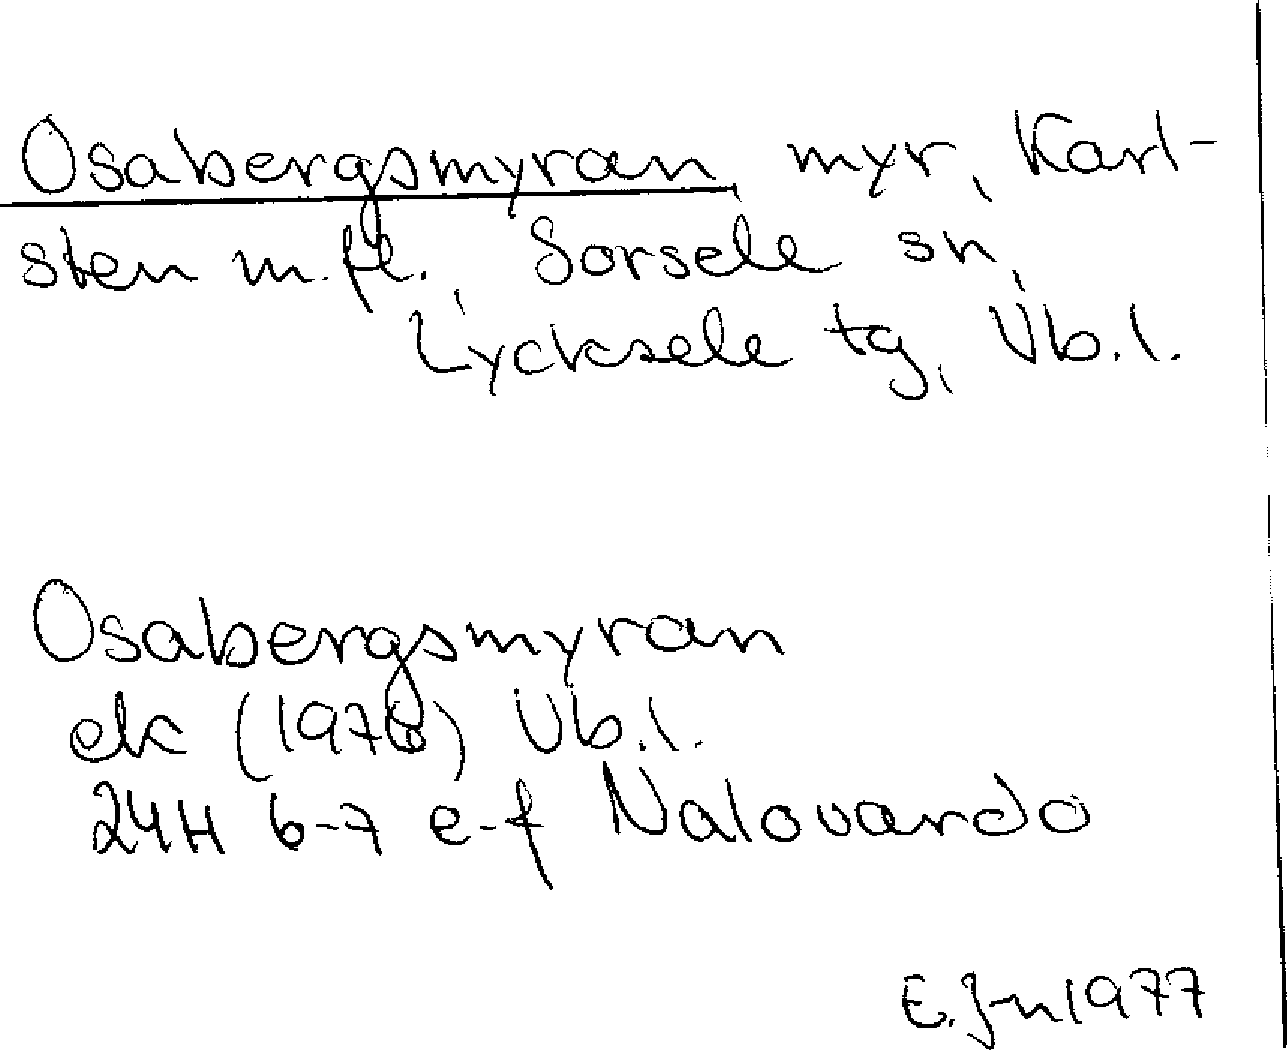 Osabergsmyran, myr, Karl-
sten m.fl., Sorsele sn,
Lycksele tg, Vb.l.
Osabergsmyran
ek (1976) Vb.l.
24H 6-7 e-f Nalovardo
E. J-n 1977